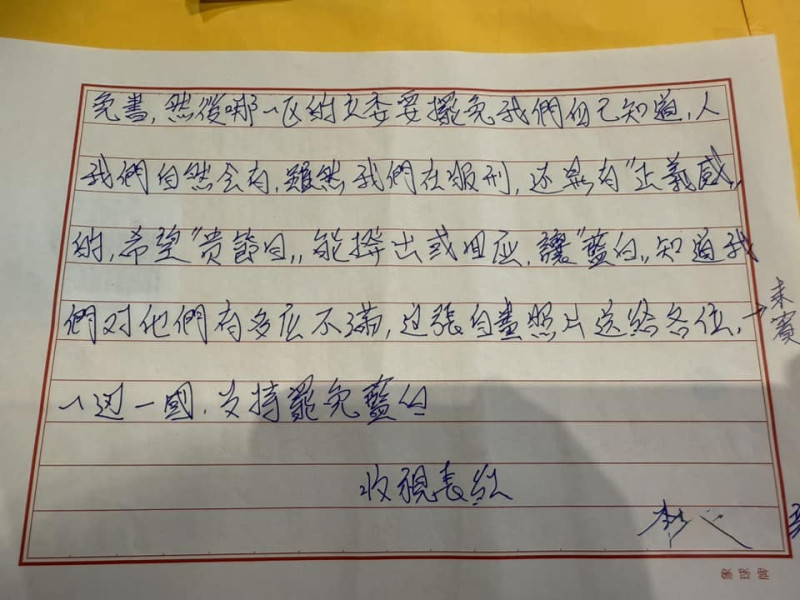 免書,然後哪一区的立委要擺免我們自己知道,人
我們自然会有,雖然我們在服刑,还是有"正義感"
的,希望"贵節目"能撥出或回应,讓"藍白"知道我
們对他們有多広不滿,这張自畫照片送給各位,→未
賽
一边一國,支持罷免藍白
收視長紅